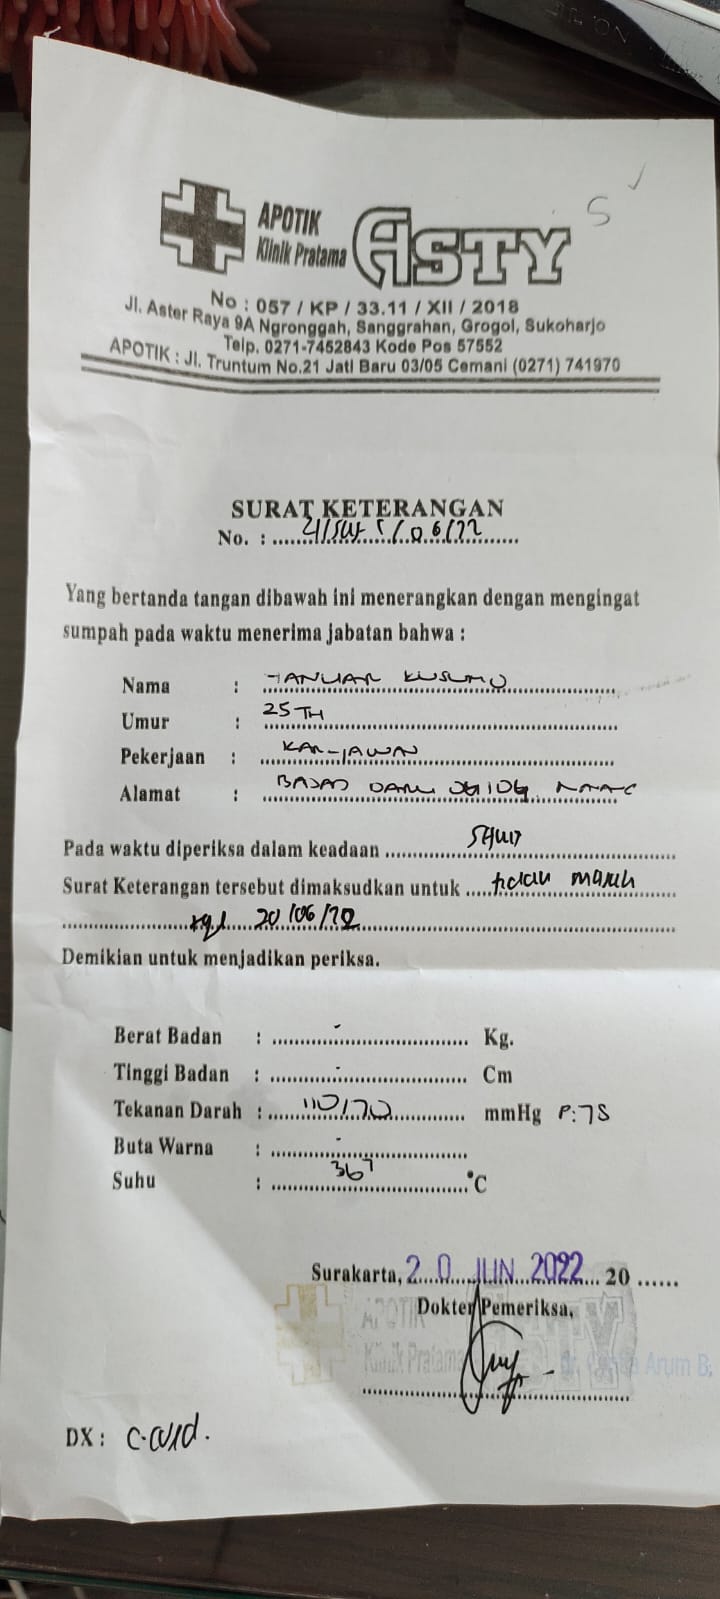 S
APOTIK
Klinik Pratama
ASTY
No : 057 / KP / 33.11 / XII / 2018
Jl. Aster Raya 9A Ngronggah, Sanggrahan, Grogol, Sukoharjo
Telp. 0271-7452843 Kode Pos 57552
APOTIK : Jl. Truntum No.21 Jati Baru 03/05 Cemani (0271) 741970
SURAT KETERANGAN
No. :
Yang bertanda tangan dibawah ini menerangkan dengan mengingat
sumpah pada waktu menerima jabatan bahwa :
Nama : KUSUMO
Umur : 25 TH
Pekerjaan :
Alamat :
Pada waktu diperiksa dalam keadaan
Surat Keterangan tersebut dimaksudkan untuk
tgl 20/06/22
Demikian untuk menjadikan periksa.
Berat Badan : - Kg.
Tinggi Badan : - Cm
Tekanan Darah : 110/70 mmHg P: 78
Buta Warna : -
Suhu : 36⁷ °C
Surakarta, 20 JUN 2022 20
Dokter Pemeriksa,
APOTIK
Klinik Pratama
Arum B,
DX :